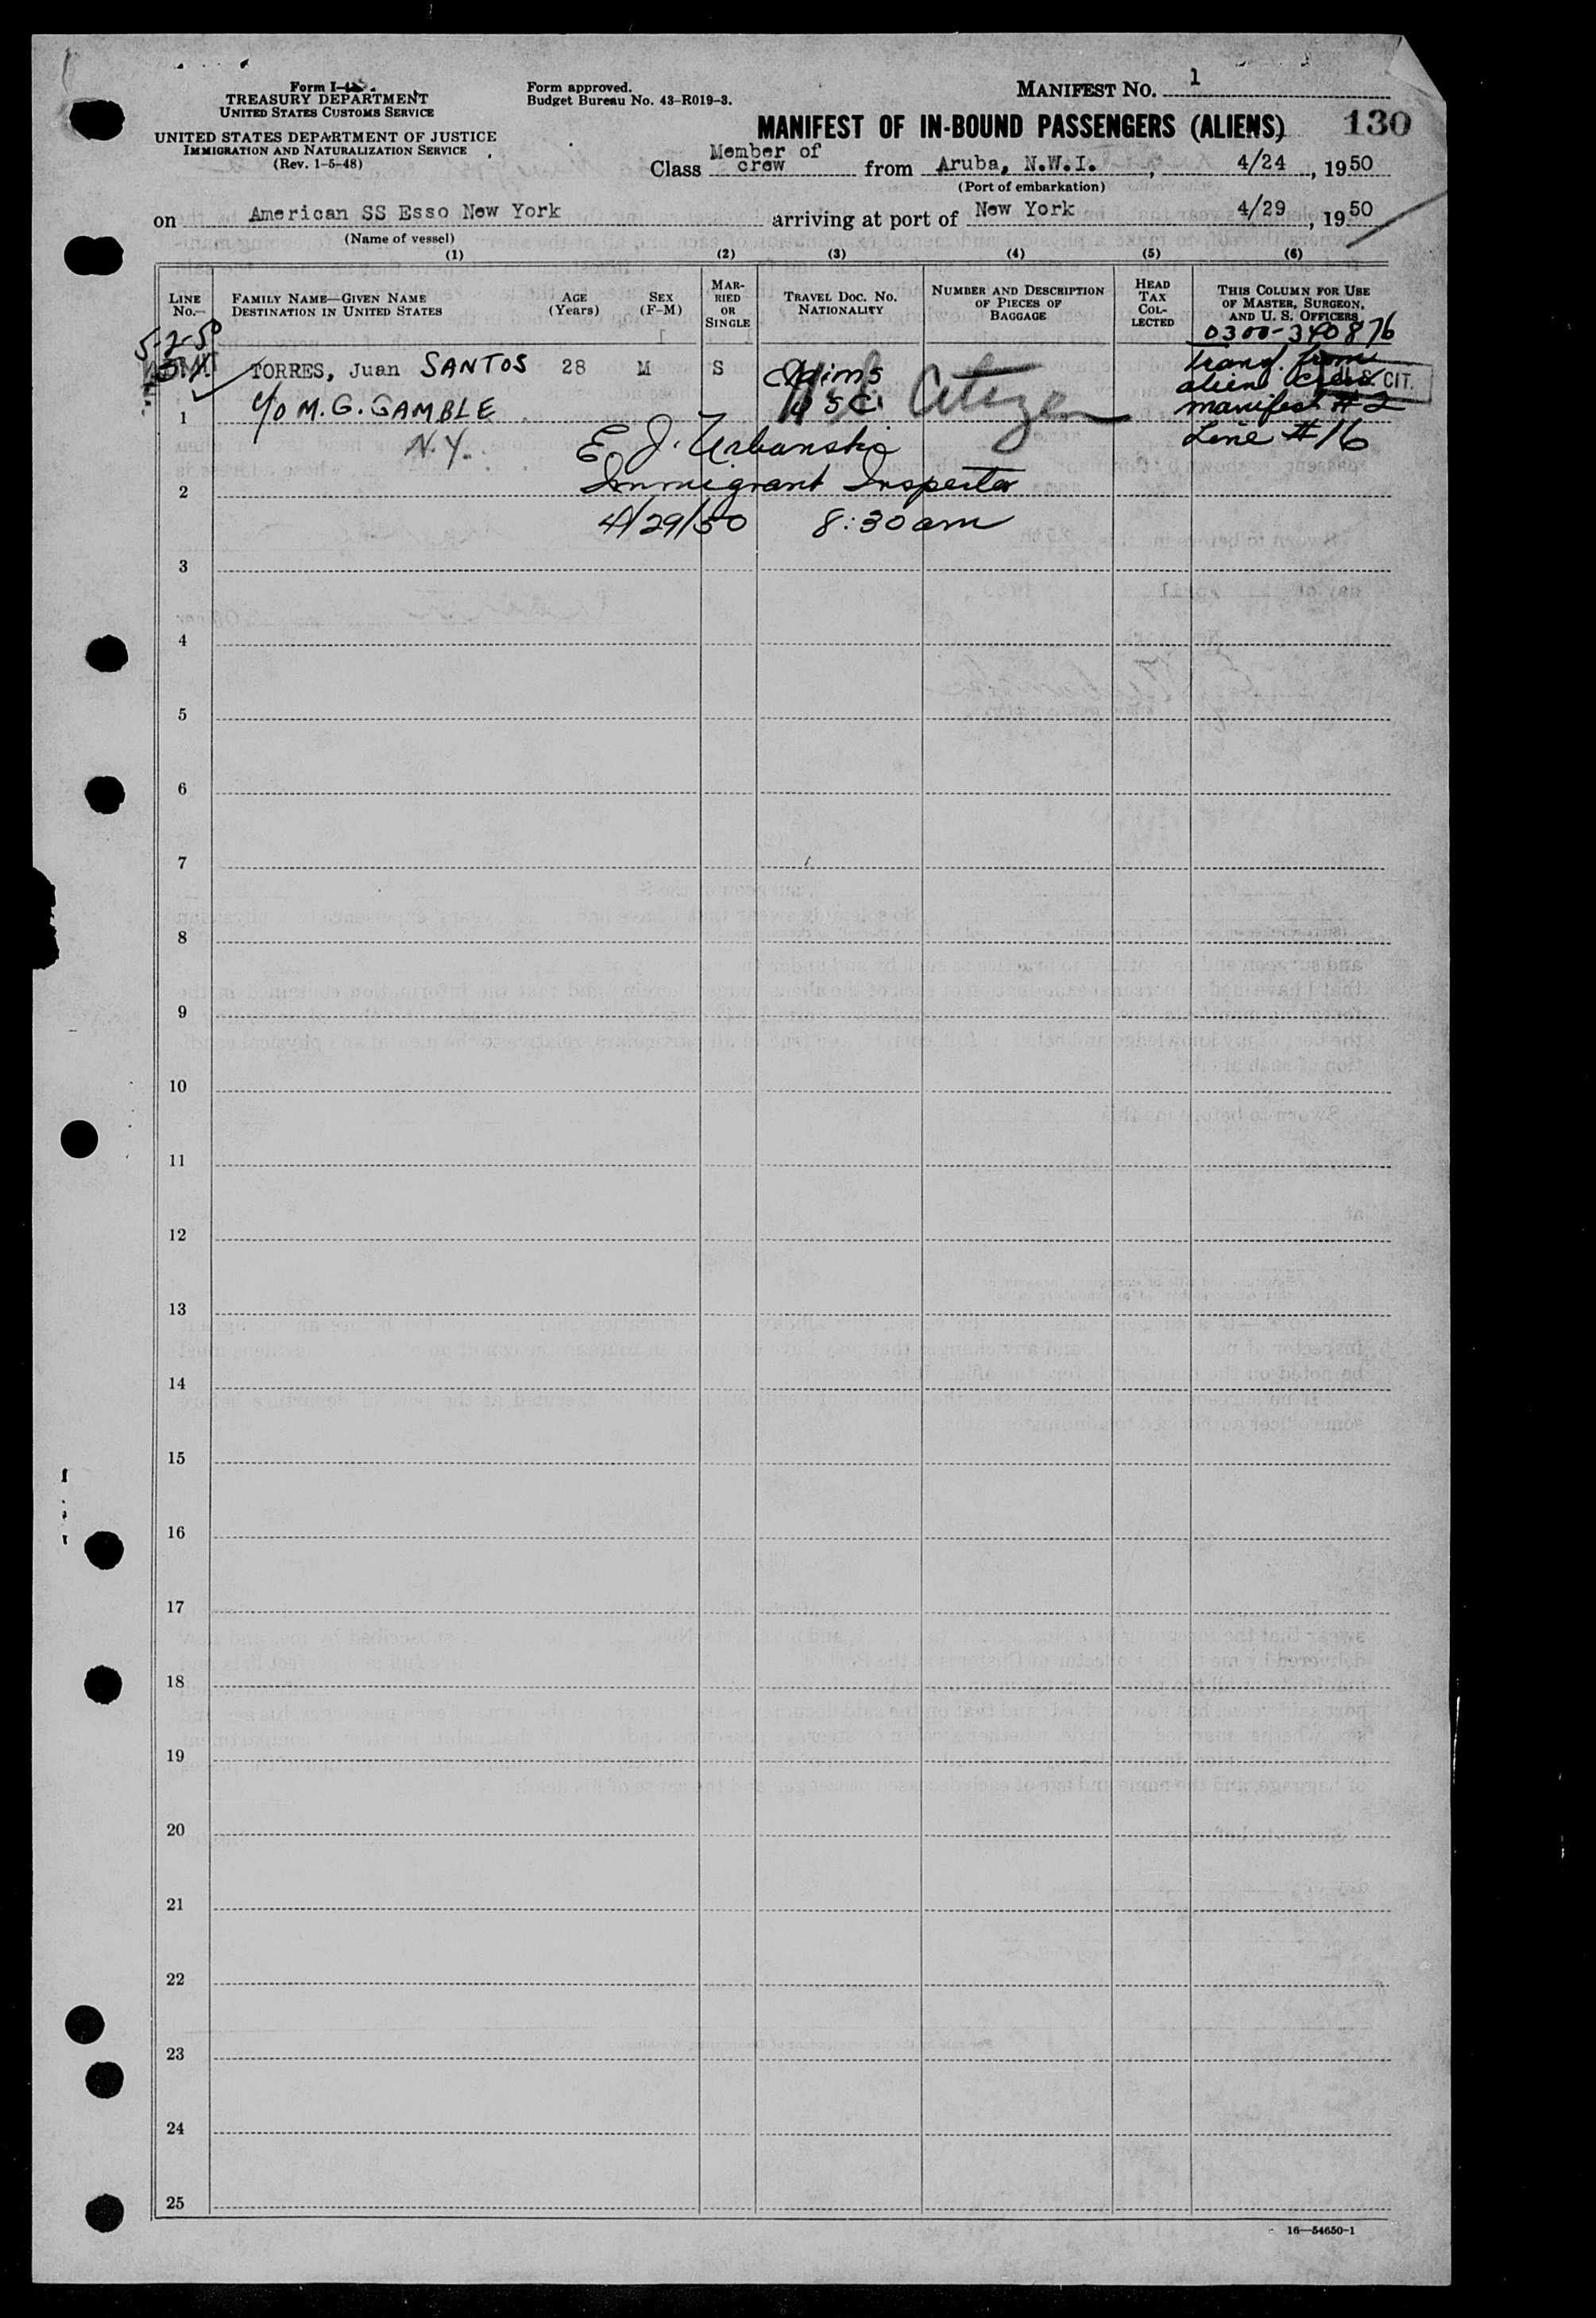 Form I-
TREASURY DEPARTMENT
UNITED STATES CUSTOMS SERVICE
UNITED STATES DEPARTMENT OF JUSTICE
IMMIGRATION AND NATURALIZATION SERVICE
(Rev. 1-5-48)
Form approved.
Budget Bureau No. 43-R019-3.
MANIFEST NO. 1
MANIFEST OF IN-BOUND PASSENGERS (ALIENS) 130
Class Member of crew from Aruba, N.W.I., 4/24, 1950
(Port of embarkation)
on American SS Esso New York arriving at port of New York 4/29, 1950
(Name of vessel)
(1) (2) (3) (4) (5) (6)
LINE NO.—
FAMILY NAME—GIVEN NAME
DESTINATION IN UNITED STATES
AGE
(Years)
SEX
(F-M)
MAR-
RIED
OR
SINGLE
TRAVEL DOC. NO.
NATIONALITY
NUMBER AND DESCRIPTION
OF PIECES OF
BAGGAGE
HEAD
TAX
COL-
LECTED
THIS COLUMN FOR USE
OF MASTER, SURGEON,
AND U. S. OFFICERS
0300-340876
5-2-50
TORRES, Juan SANTOS 28 M S Claims
USC
U.S. Citizen
transf. from
alien crew
manifest #2
Line #16
U.S. CIT.
1 c/o M. G. GAMBLE
N.Y.
E. J. Urbanski
2 Immigrant Inspector
4/29/50 8:30 am
3
4
5
6
7
8
9
10
11
12
13
14
15
16
17
18
19
20
21
22
23
24
25
16—54650-1